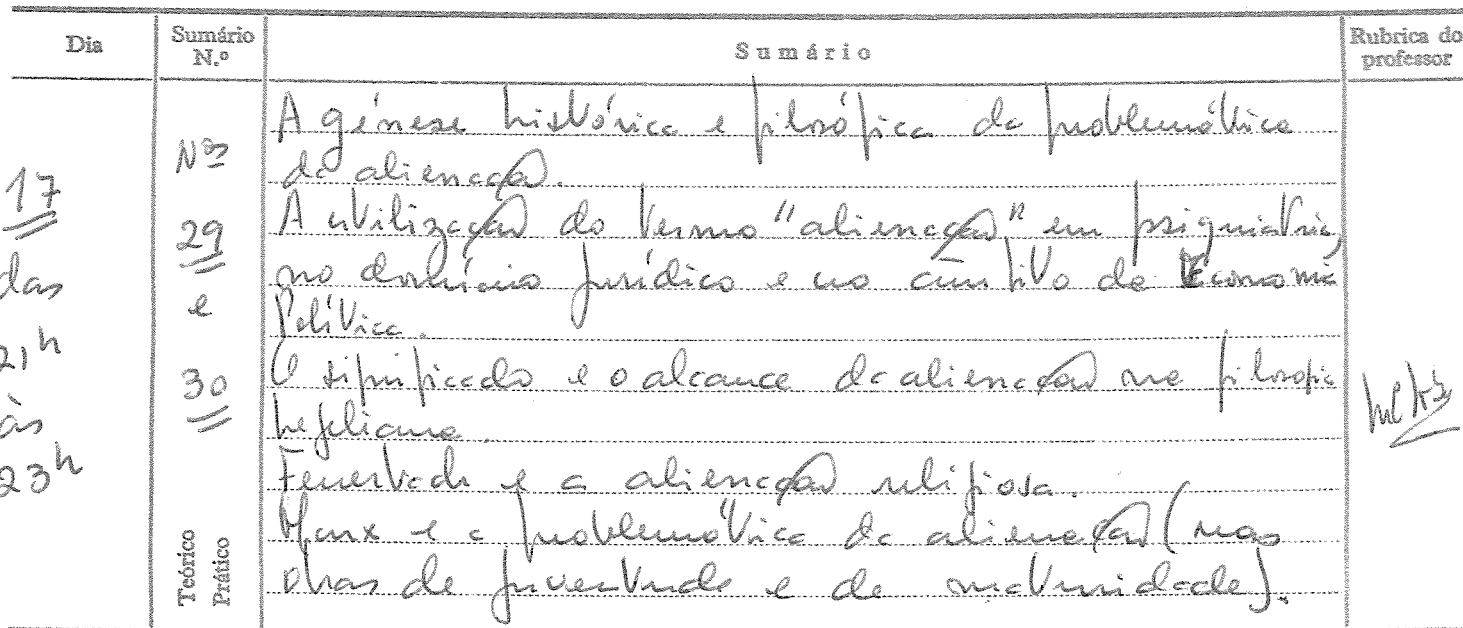 Dia
Sumário N.º
Sumário
Rubrica do professor
17
das
21h
às
23h
Nos
29
e
30
Teórico
Prático
A génese histórica e filosófica da problemática
da alienação.
A utilização do termo "alienação" em psiquiatria,
no domínio jurídico e no âmbito da Economia
Política.
O significado e o alcance da alienação na filosofia
hegeliana.
Feuerbach e a alienação religiosa.
Marx e a problemática da alienação (nas
obras de juventude e de maturidade).